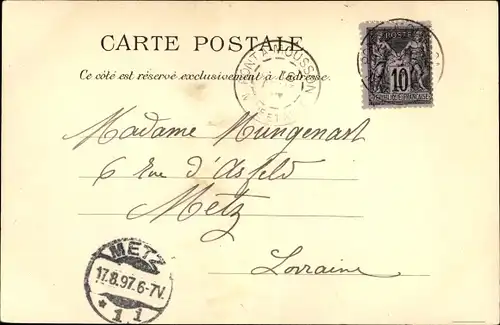 CARTE POSTALE
Ce côté est réservé exclusivement à l'adresse.
PONT-A-MOUSSON
POSTE
10
Madame Mungenart
6 Rue d'Asfeld
Metz
Lorraine
METZ
17.8.97.6-7V.
* 1 1